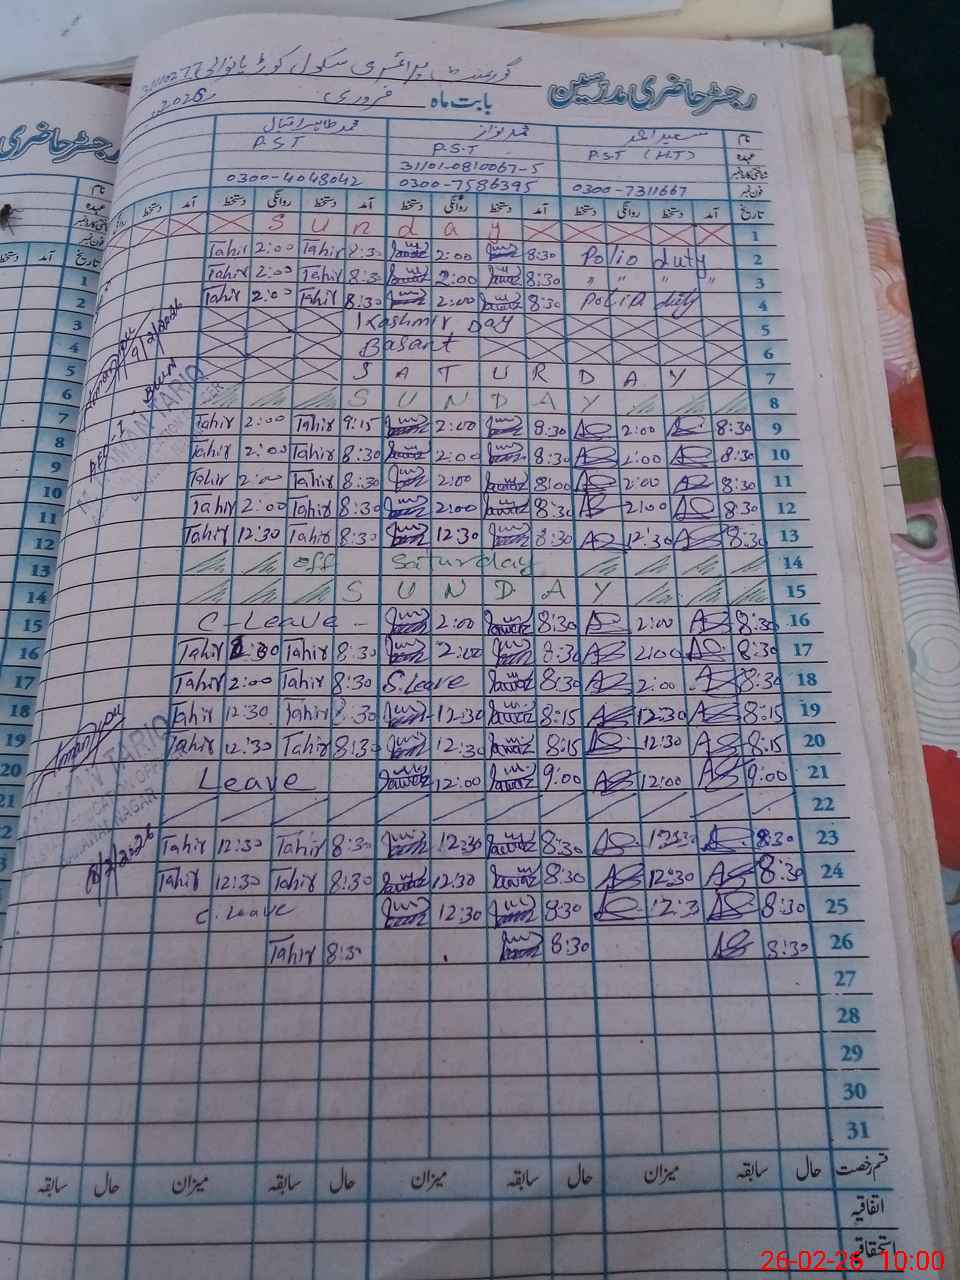 گورنمنٹ پرائمری سکول
رجسٹر حاضری مدرسین بابت ماہ فروری 2026
نام سعید احمد محمد نواز محمد طاہر اقبال
عہدہ P.S.T (H.T) P.S.T P.S.T
شناختی کارڈ نمبر 31101-0810067-5
فون نمبر 0300-7311667 0300-7586395 0300-4048042
تاریخ آمد دستخط روانگی دستخط آمد دستخط روانگی دستخط آمد دستخط روانگی دستخط
S u n d a y 1
Tahir 2:00 Tahir 8:30 2:00 8:30 Polio duty 2
Tahir 2:00 Tahir 8:30 2:00 8:30 " " " 3
Tahir 2:00 Tahir 8:30 2:00 8:30 Polio duty 4
Kashmir Day 5
Basant 6
S A T U R D A Y 7
S U N D A Y 8
Tahir 2:00 Tahir 9:15 2:00 8:30 2:00 8:30 9
Tahir 2:00 Tahir 8:30 2:00 8:30 2:00 8:30 10
Tahir 2:00 Tahir 8:30 2:00 8:00 2:00 8:30 11
Tahir 2:00 Tahir 8:30 2:00 8:30 2:00 8:30 12
Tahir 12:30 Tahir 8:30 12:30 8:30 12:30 8:30 13
off Saturday 14
S U N D A Y 15
C-Leave - 2:00 8:30 2:00 8:30 16
Tahir Tahir 8:30 2:00 8:30 2:00 8:30 17
Tahir 2:00 Tahir 8:30 S.Leave 8:30 2:00 8:30 18
Tahir 12:30 Tahir 8:30 12:30 8:15 12:30 8:15 19
Tahir 12:30 Tahir 8:30 12:30 8:15 12:30 8:15 20
Leave 12:00 9:00 12:00 9:00 21
22
Tahir 12:30 Tahir 8:30 12:30 8:30 12:30 8:30 23
Tahir 12:30 Tahir 8:30 12:30 8:30 12:30 8:30 24
C.Leave 12:30 8:30 12:3 8:30 25
Tahir 8:30 8:30 8:30 26
27
28
29
30
31
قسم رخصت حال سابقہ میزان حال سابقہ میزان حال سابقہ میزان حال سابقہ
اتفاقیہ
استحقاقی
9/2/2026
18/2/2026
رجسٹر حاضری
نام
عہدہ
فون نمبر
تاریخ آمد
1
2
3
4
5
6
7
8
9
10
11
12
13
14
15
16
17
18
19
20
21
26-02-26 10:00